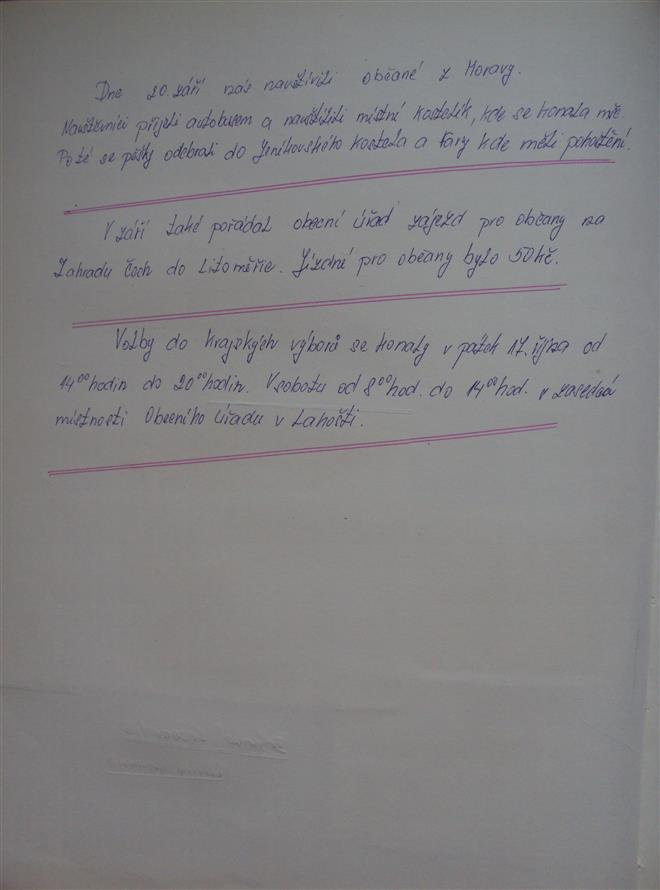 Dne 20. září nás navštívili občané z Moravy.
Navštěvníci přijeli autobusem a navštívili místní kostelík, kde se konala mše.
Poté se pěšky odebrali do Jeníkovského kostela a fary kde měli pohoštění.
V září také pořádal obecní úřad zájezd pro občany na
Zahradu Čech do Litoměřic. Jízdné pro občany bylo 50 kč.
Volby do krajských výborů se konaly v pátek 17. října od
14⁰⁰ hodin do 20⁰⁰ hodin. V sobotu od 8⁰⁰ hod. do 14⁰⁰ hod. v zasedací
místnosti Obecního úřadu v Lahošti.